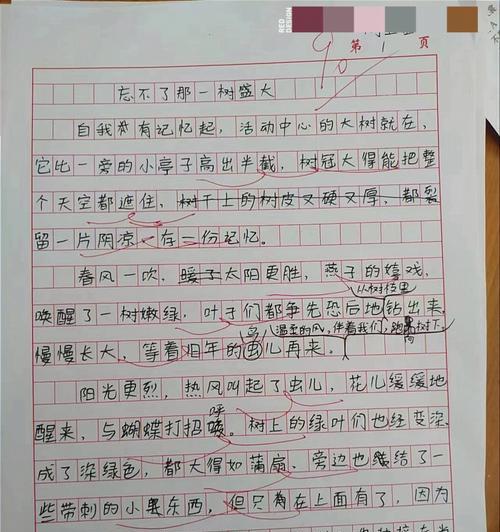 RED DESIGN
90
第 1 页
忘不了那一树盛大
自我有记忆起，活动中心的大树就在，
它比一旁的小亭子高出半截，树冠大得能把整
个天空都遮住，树干上的树皮又硬又厚，都裂
留一片阴凉，存一份记忆。
春风一吹，暖了太阳更胜，燕子的嬉戏，
从树枝里
唤醒了一树嫩绿，叶子们都争先恐后地钻出来，
鸟 温柔的风，伴着我们，跑向树下，
慢慢长大，等着旧年的虫儿再来。
阳光更烈，热风叫起了虫儿，花儿缓缓地
呼
醒来，与蝴蝶打招唤。树上的绿叶们也经变深，
成了深绿色，都大得如蒲扇。旁边也结了一
些带刺的小东西，但只有在上面有了，因为